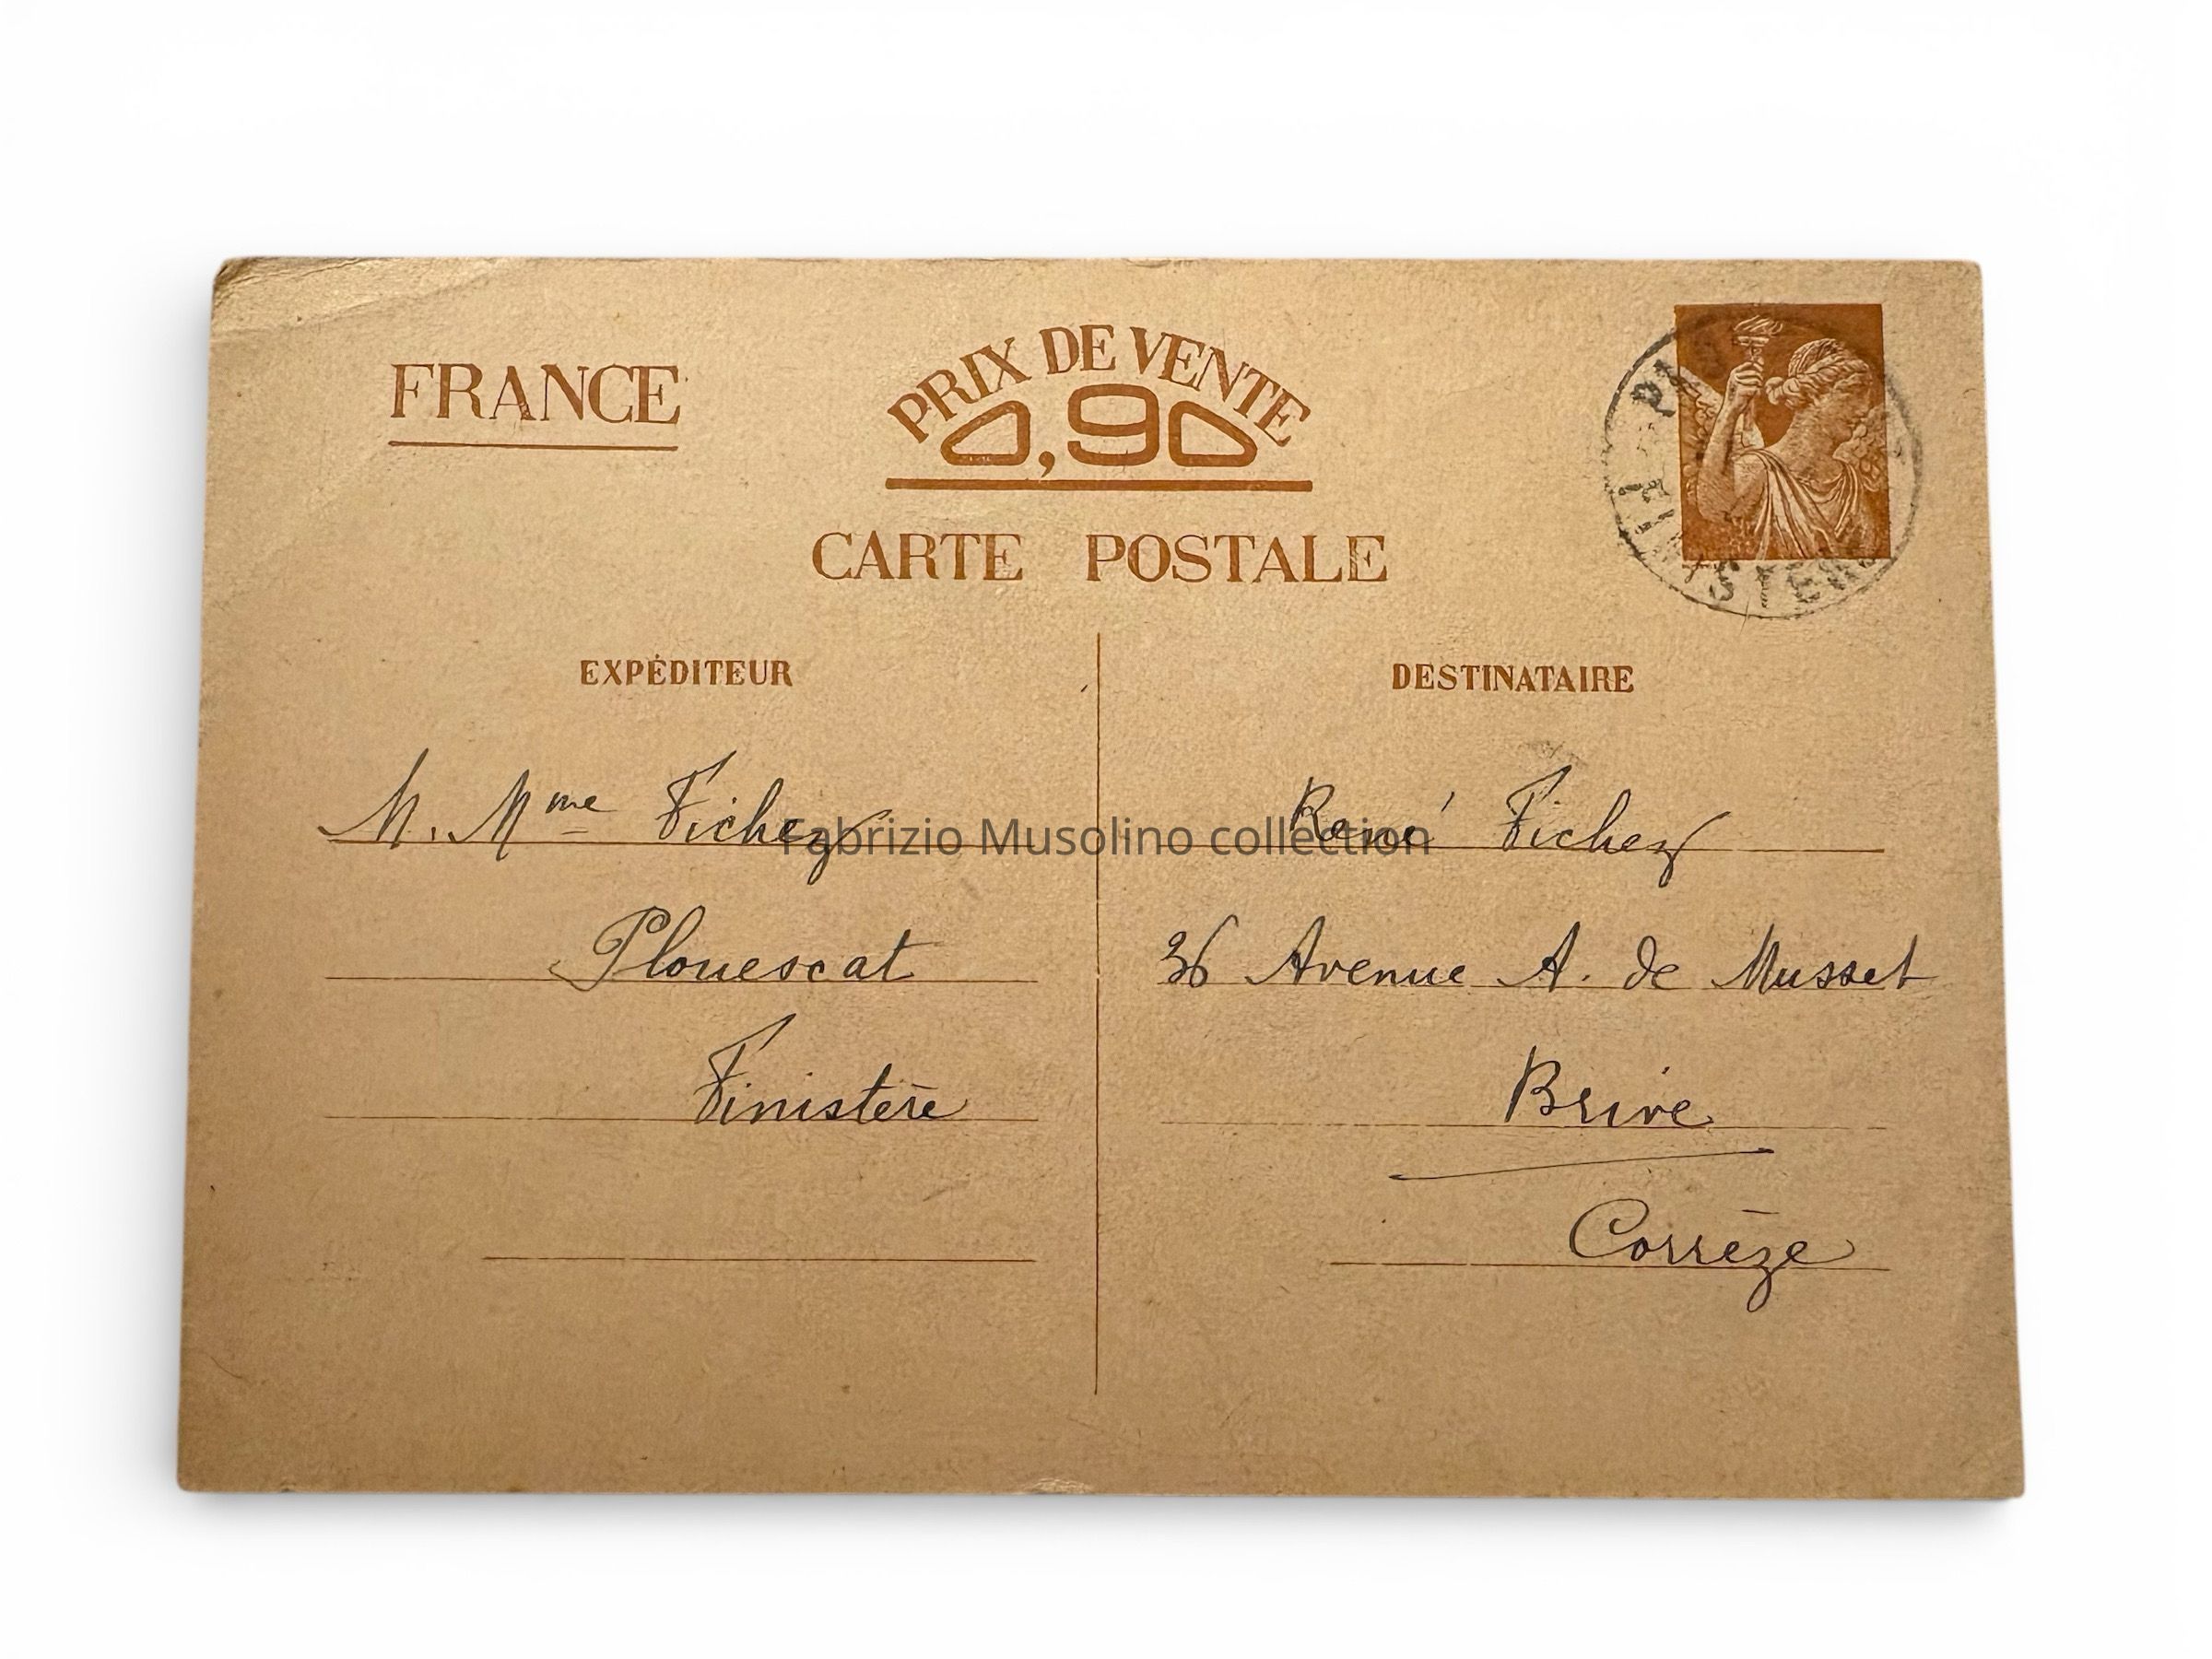 FRANCE
PRIX DE VENTE
0,90
CARTE POSTALE
EXPÉDITEUR
M. Mme Fichez
Plouescat
Finistère
DESTINATAIRE
René Fichez
36 Avenue A. de Musset
Brive
Corrèze
Fabrizio Musolino collection